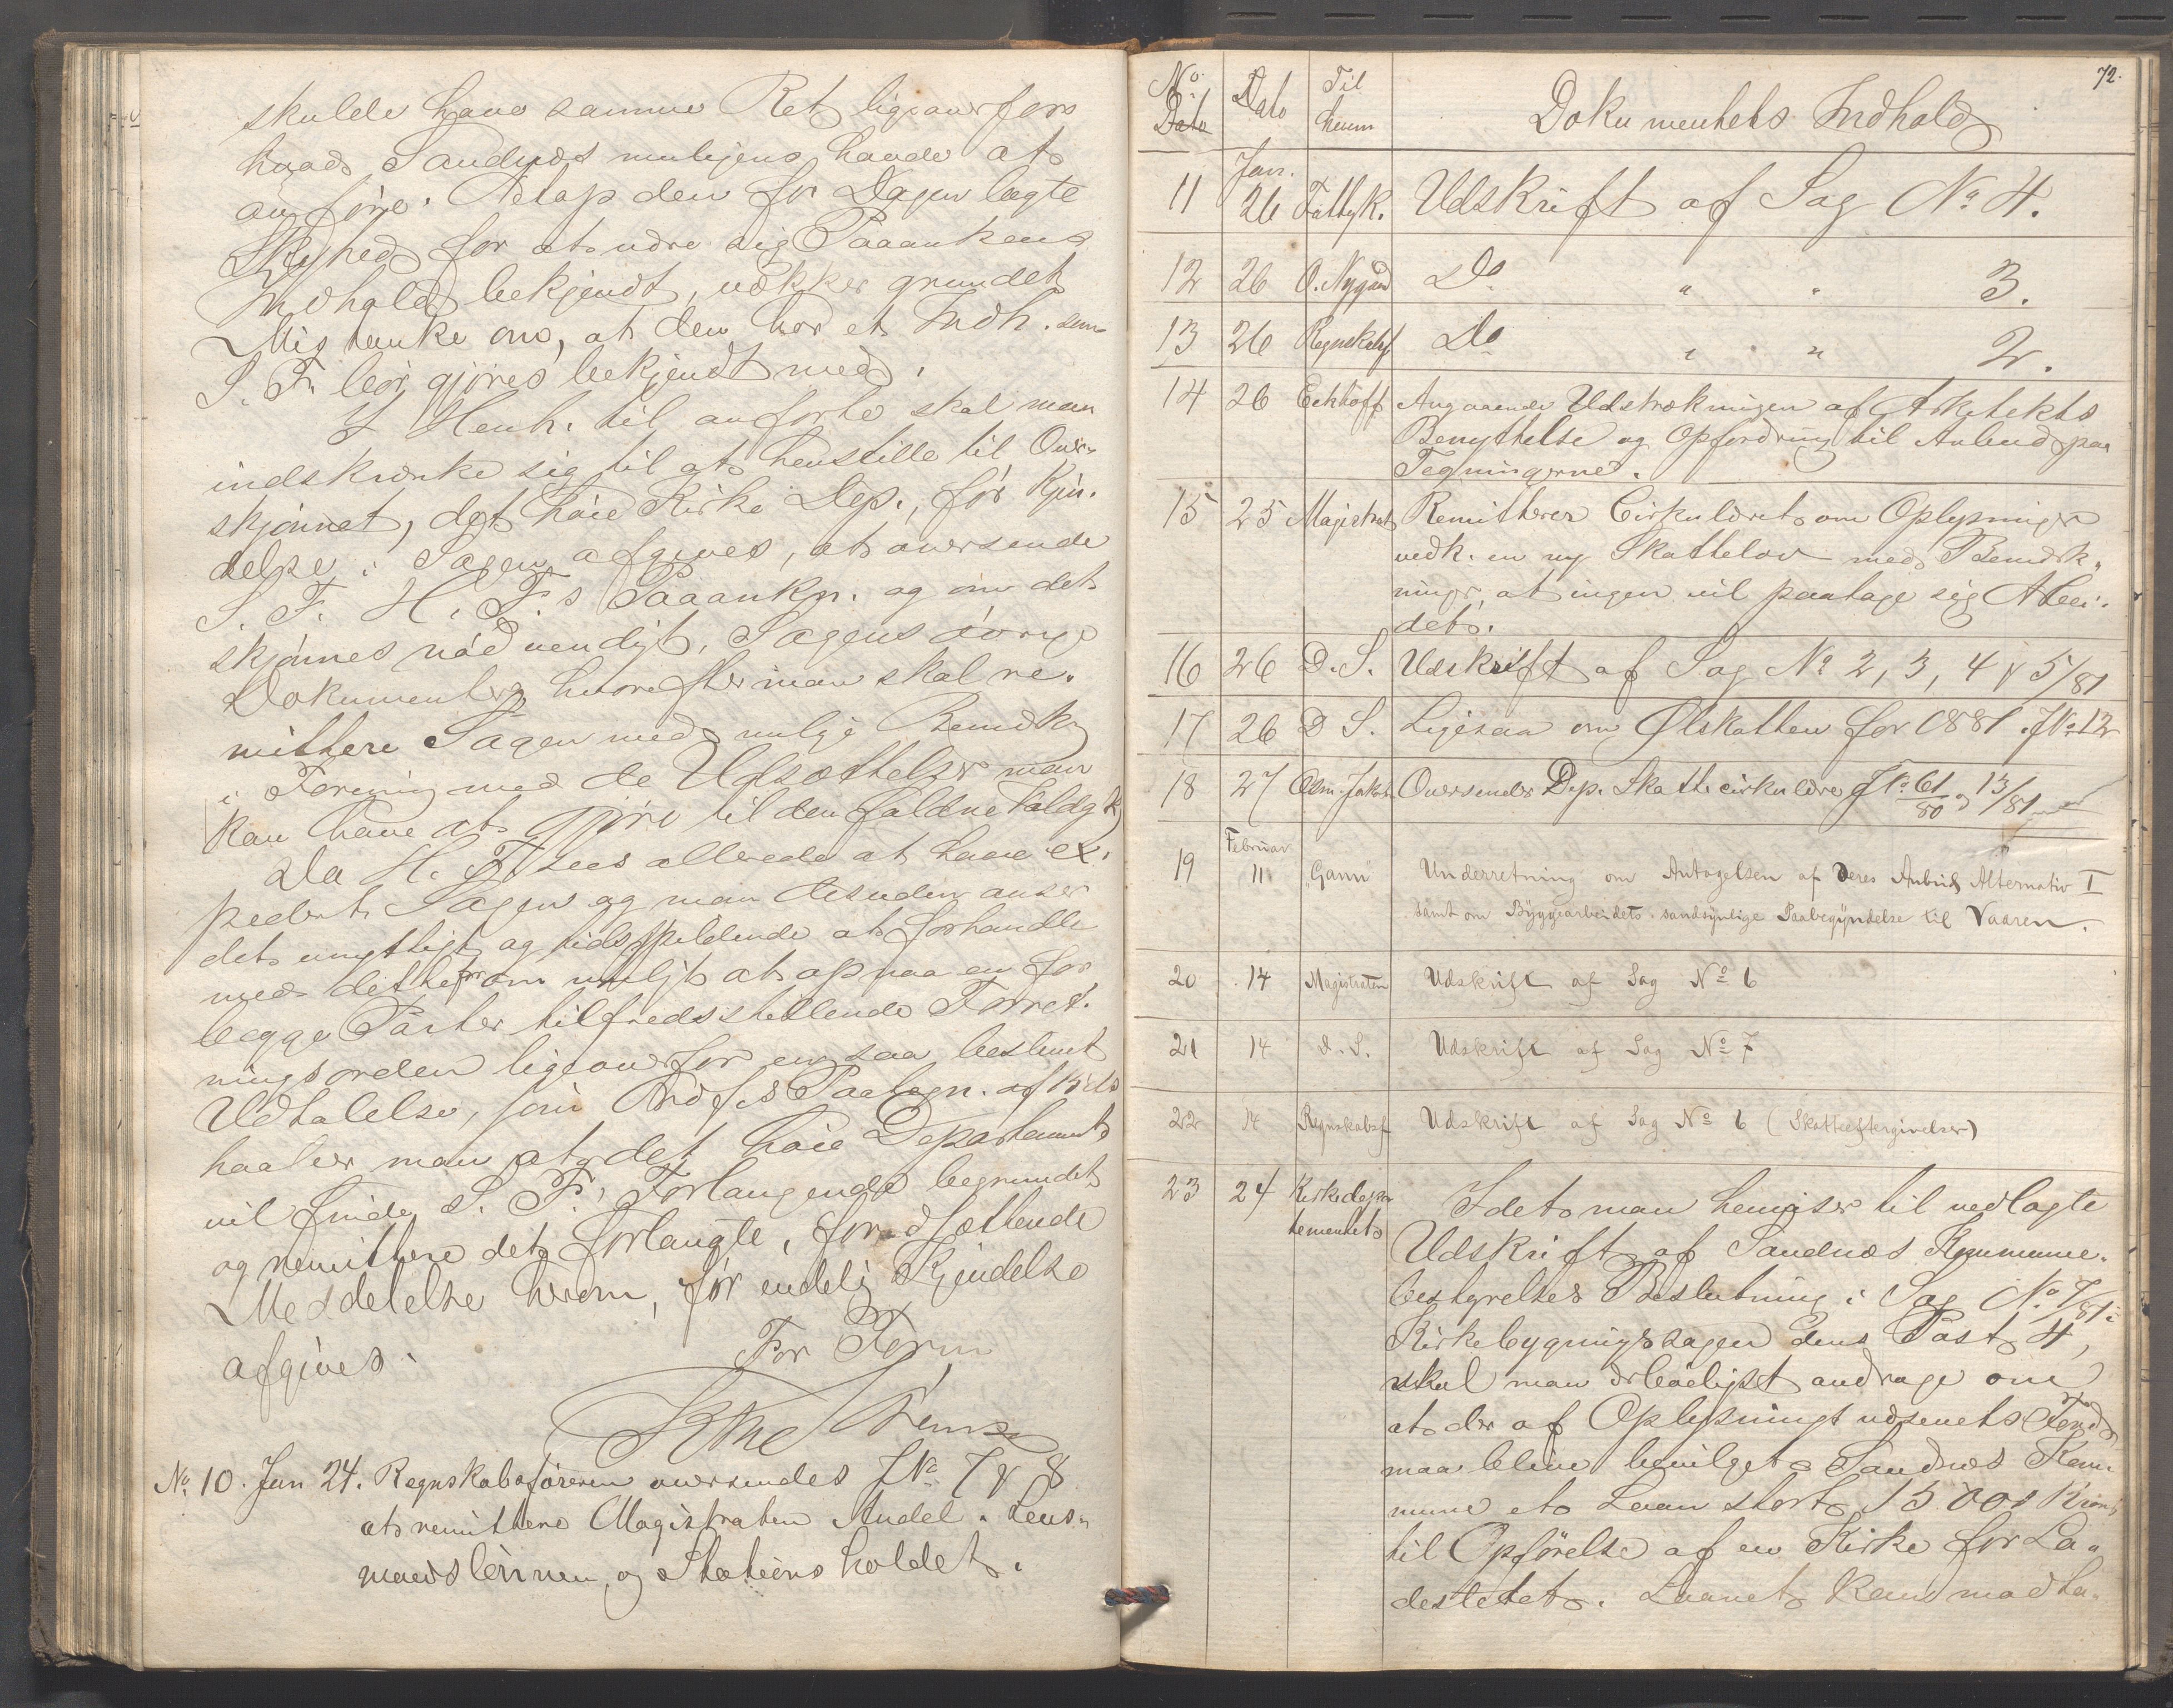 skulde have samme Ret ligeoverfor
hvad Sandnæs muligens havde at
anføre. Netop den for Dagen lagte
Skyhed for at være sig Paaankens
Indhold bekjendt, vækker grundet
Mistanke om, at den har et Indh. som
S. F. bør gjøres bekjendt med.
I Henh. til anførte skal man
indskrænke sig til at henstille til Over-
skjønnet, det høie Kirke Dep., før Kjen-
delse i Sagen afgives, at oversende
S. F. H. F.s Paaankn. og om det
skjønnes nødvendigt, Sagens øvrige
Dokumenter, hvorefter man skal re-
mittere Sagen med mulige Bemærkn
i Forening med de Udsættelser man
kan have at gjøre til den faldne Voldgk
Da H. F. sees allerede at have ex-
pederet Sagen og man desuden anser
det unyttigt og tidsspildende at forhandle
med dette om muligt at opnaa en for
begge Parter tilfredsstillende Forret-
ningsorden ligeoverfor en saa bestemt
Udtalelse, som Ordf.s Paategn. af 15 ds
haaber man at det høie Departement
vil finde S. F. Forlangende begrundet
og remittere det forlangte, forudsættende
Meddelelse herom, før endelig Kjendelse
afgives.
For Form
No 10. Jan 24. Regnskabsføreren oversendes J No 7 & 8
at remittere Magistraten Andel i Lens-
mandslønnen og Stationsholdet.
72.
No Dato Til hvem Dokumentets Indhold
Dato
Jan.
11 26 Fattigk. Udskrift af Sag No 4.
12 26 O. Nygård Do " " 3.
13 26 Regnskabsf Do " " 2.
14 26 Eckhoff Angaaende Udstrækningen af Arkitekts
Benyttelse og Opfordring til Anbud paa
Tegningerne.
15 25 Magistrat Remitterer Cirkulæret om Oplysninger
vedk. en ny Skattelov med Bemærk-
ninger, at ingen vil paatage sig Arbei-
det.
16 26 D. S. Udskrift af Sag No 2, 3, 4 & 5/81
17 26 D S. Ligesaa om Ølskatten for 1881. J No 12
18 27 Oversender Dep. Skattecirkulære J No 61/80 og 13/81
Februar
19 11 Gann Underretning om Antagelsen af deres Anbud Alternativ I
samt om Byggearbeidets sandsynlige Paabegyndelse til Vaaren.
20 14 Magistraten Udskrift af Sag No 6
21 14 D. S. Udskrift af Sag No 7
22 14 Regnskabsf Udskrift af Sag No 6 (Skatteeftergivelser)
23 24 Kirkedepar- Idet man henviser til vedlagte
tementet Udskrift af Sandnæs Kommune-
bestyrelses Beslutning i Sag No 7/81:
Kirkebygningssagen dens Post 4,
skal man ærbødigst andrage om
at der af Oplysningsvæsenets Fond
maa blive bevilget Sandnæs Kom-
mune et Laan stort 15000 Kroner
til Opførelse af en Kirke for La-
destedet. Laanet kan modta-